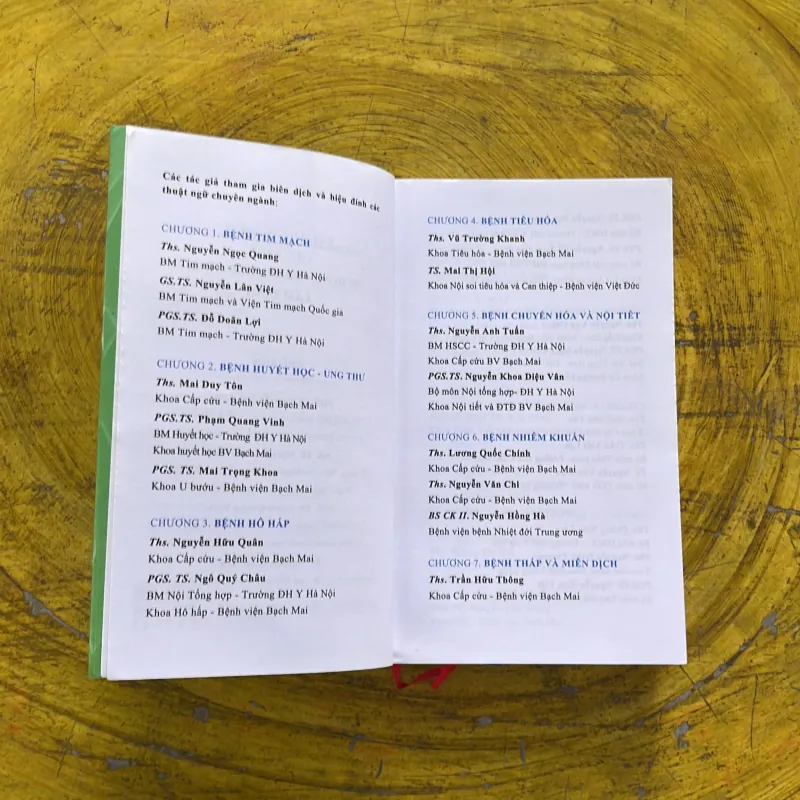 Các tác giả tham gia biên dịch và hiệu đính các
thuật ngữ chuyên ngành:
CHƯƠNG 1. BỆNH TIM MẠCH
Ths. Nguyễn Ngọc Quang
BM Tim mạch - Trường ĐH Y Hà Nội
GS.TS. Nguyễn Lân Việt
BM Tim mạch và Viện Tim mạch Quốc gia
PGS.TS. Đỗ Doãn Lợi
BM Tim mạch - Trường ĐH Y Hà Nội
CHƯƠNG 2. BỆNH HUYẾT HỌC - UNG THƯ
Ths. Mai Duy Tôn
Khoa Cấp cứu - Bệnh viện Bạch Mai
PGS.TS. Phạm Quang Vinh
BM Huyết học - Trường ĐH Y Hà Nội
Khoa huyết học BV Bạch Mai
PGS. TS. Mai Trọng Khoa
Khoa U bướu - Bệnh viện Bạch Mai
CHƯƠNG 3. BỆNH HÔ HẤP
Ths. Nguyễn Hữu Quân
Khoa Cấp cứu - Bệnh viện Bạch Mai
PGS. TS. Ngô Quý Châu
BM Nội Tổng hợp - Trường ĐH Y Hà Nội
Khoa Hô hấp - Bệnh viện Bạch Mai
CHƯƠNG 4. BỆNH TIÊU HÓA
Ths. Vũ Trường Khanh
Khoa Tiêu hóa - Bệnh viện Bạch Mai
TS. Mai Thị Hội
Khoa Nội soi tiêu hóa và Can thiệp - Bệnh viện Việt Đức
CHƯƠNG 5. BỆNH CHUYỂN HÓA VÀ NỘI TIẾT
Ths. Nguyễn Anh Tuấn
BM HSCC - Trường ĐH Y Hà Nội
Khoa Cấp cứu BV Bạch Mai
PGS.TS. Nguyễn Khoa Diệu Vân
Bộ môn Nội tổng hợp- ĐH Y Hà Nội
Khoa Nội tiết và ĐTĐ BV Bạch Mai
CHƯƠNG 6. BỆNH NHIỄM KHUẨN
Ths. Lương Quốc Chính
Khoa Cấp cứu - Bệnh viện Bạch Mai
Ths. Nguyễn Văn Chi
Khoa Cấp cứu - Bệnh viện Bạch Mai
BS CK II. Nguyễn Hồng Hà
Bệnh viện bệnh Nhiệt đới Trung ương
CHƯƠNG 7. BỆNH THẤP VÀ MIỄN DỊCH
Ths. Trần Hữu Thông
Khoa Cấp cứu - Bệnh viện Bạch Mai